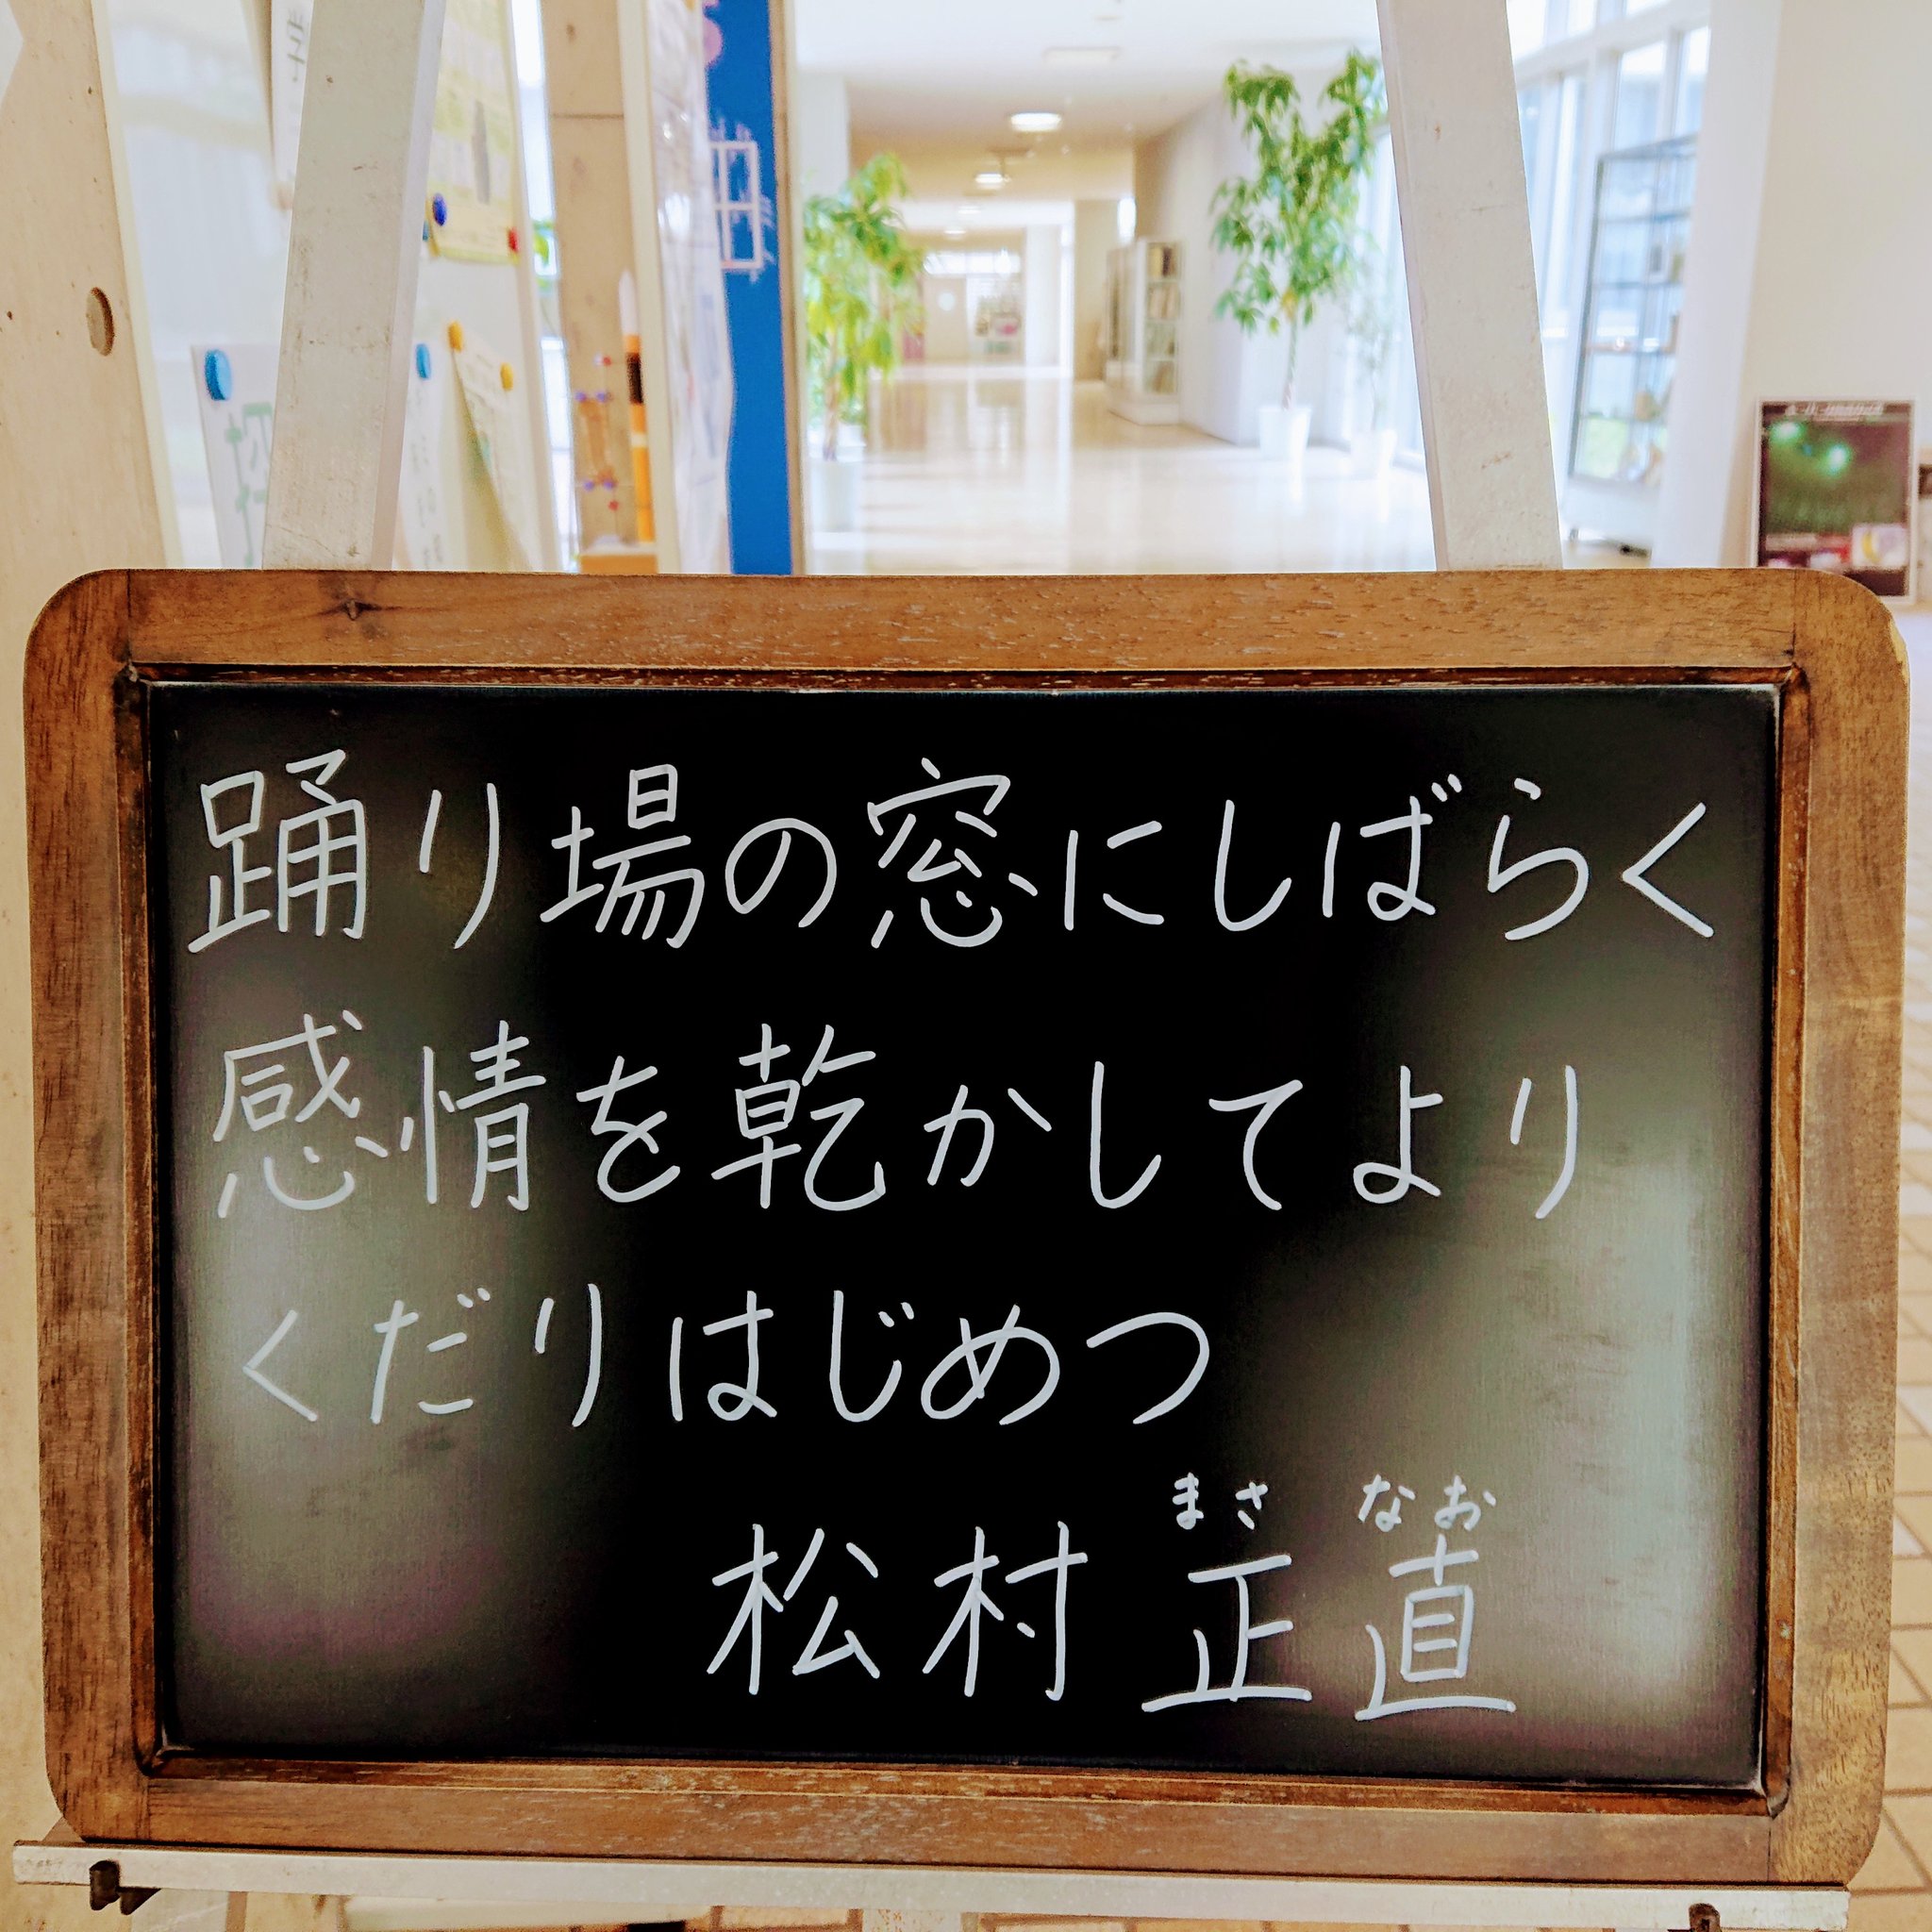 踊り場の窓にしばらく
感情を乾かしてより
くだりはじめつ
まさ なお
松村正直